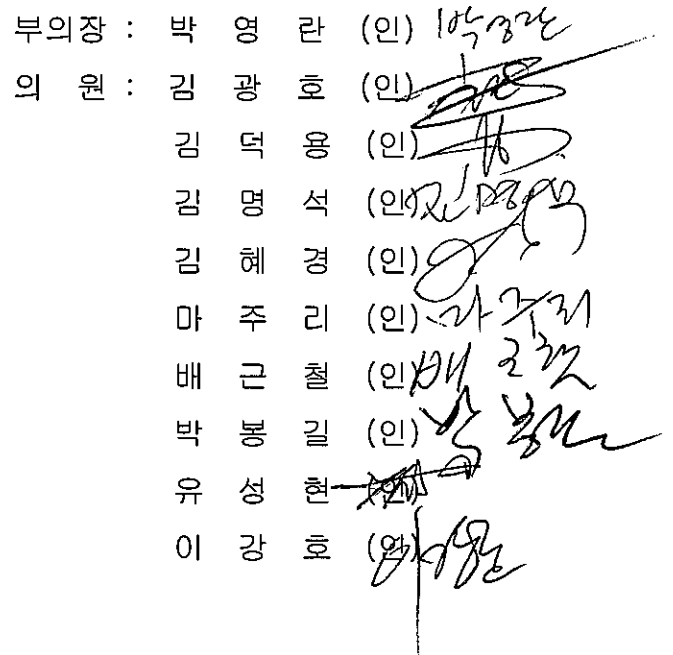 부의장 : 박 영 란 (인) 박영란
의 원 : 김 광 호 (인)
김 덕 용 (인)
김 명 석 (인) 김명석
김 혜 경 (인)
마 주 리 (인) 마주리
배 근 철 (인) 배근철
박 봉 길 (인) 박봉길
유 성 현 (인)
이 강 호 (인) 이강호